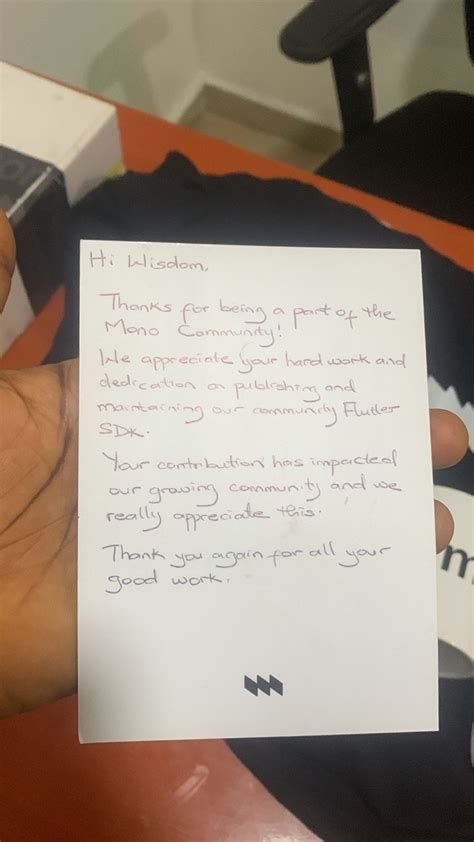 Hi Wisdom,
Thanks for being a part of the
Mono Community!
We appreciate your hard work and
dedication on publishing and
maintaining our community Flutter
SDK.
Your contribution has impacted
our growing community and we
really appreciate this.
Thank you again for all your
good work.
m